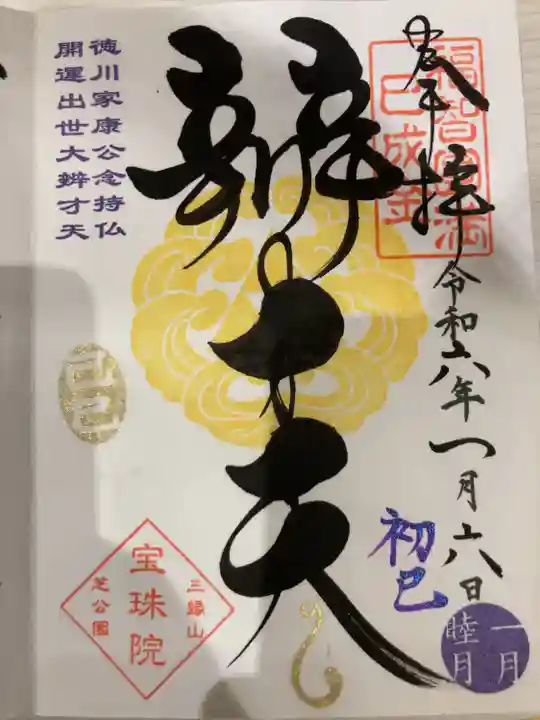 奉拝
福智円満
巳成金
令和六年一月六日
初巳
一月
睦月
辨才天
徳川家康公念持仏
開運出世大辨才天
三縁山
宝珠院
芝公園